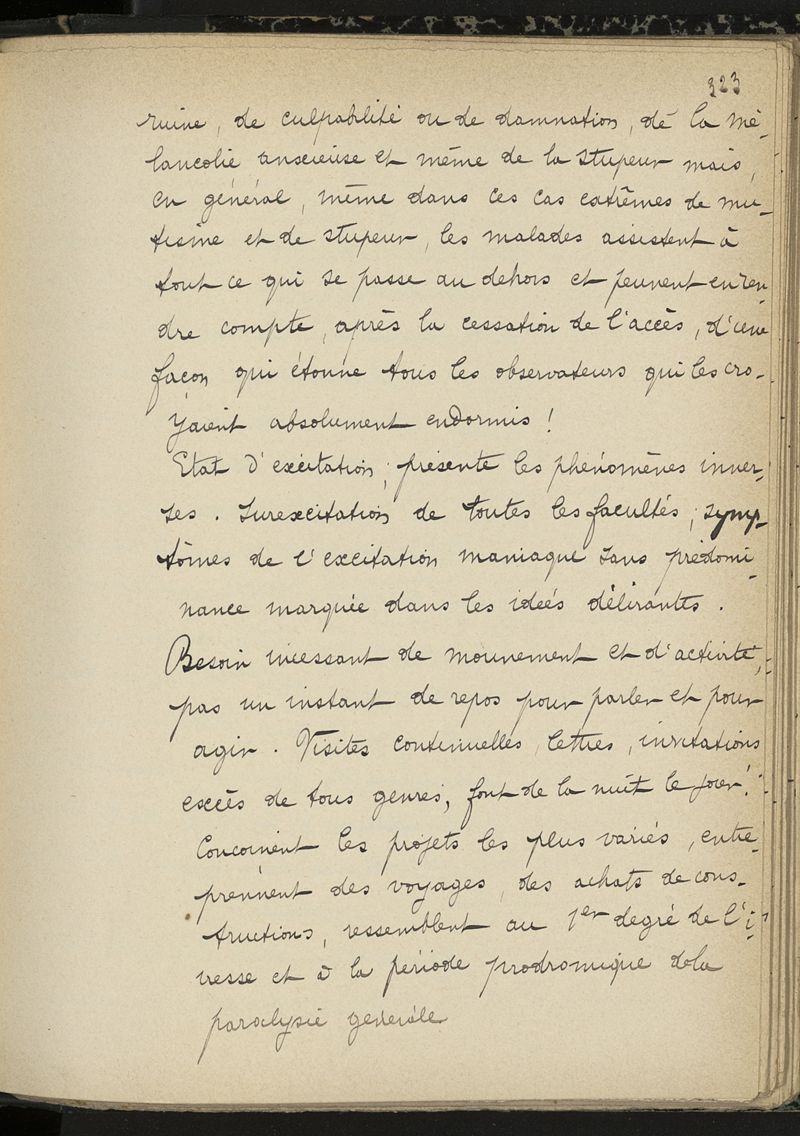 323
ruine, de culpabilité ou de damnation, de la mé-
lancolie anxieuse et même de la stupeur mais,
en général, même dans ces cas extrêmes de mu-
tisme et de stupeur, les malades assistent à
tout ce qui se passe au dehors et peuvent en ren-
dre compte, après la cessation de l'accès, d'une
façon qui étonne tous les observateurs qui les cro-
yaient absolument endormis !
Etat d'excitation; présente les phénomènes inver-
ses. Surexcitation de toutes les facultés; symp-
tômes de l'excitation maniaque sans prédomi-
nance marquée dans les idées délirantes.
Besoin incessant de mouvement et d'activité,
pas un instant de repos pour parler et pour
agir. Visites continuelles, lettres, invitations
excès de tous genres, font de la nuit le jour!
Conçoivent les projets les plus variés, entre-
prennent des voyages, des achats de cons-
tructions, ressemblent au 1er degré de l'i-
vresse et à la période prodromique de la
paralysie générale